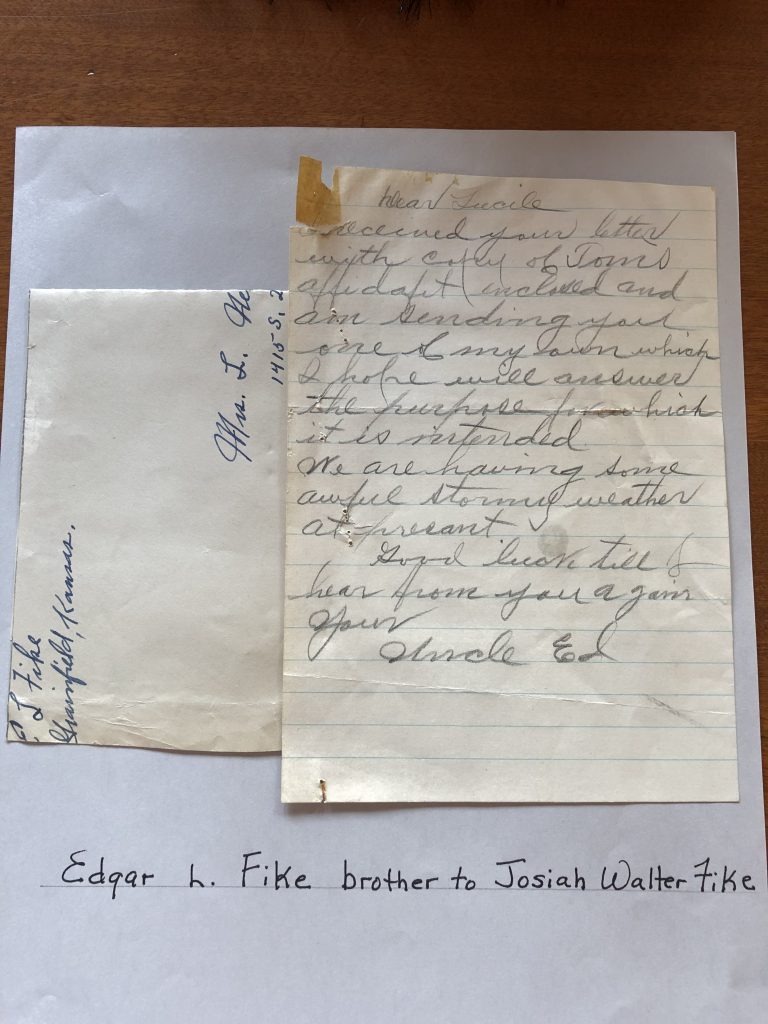 Dear Lucile
I received your letter
with copy of Toms
affidafit inclosed and
am sending you
one of my own which
I hope will answer
the purpose for which
it is intended
We are having some
awful stormy weather
at presant
Good luck till I
hear from you again
Your
Uncle Ed
Mrs. L. Ne
1415 S. 2
E L Fike
Grainfield, Kansas.
Edgar L. Fike brother to Josiah Walter Fike